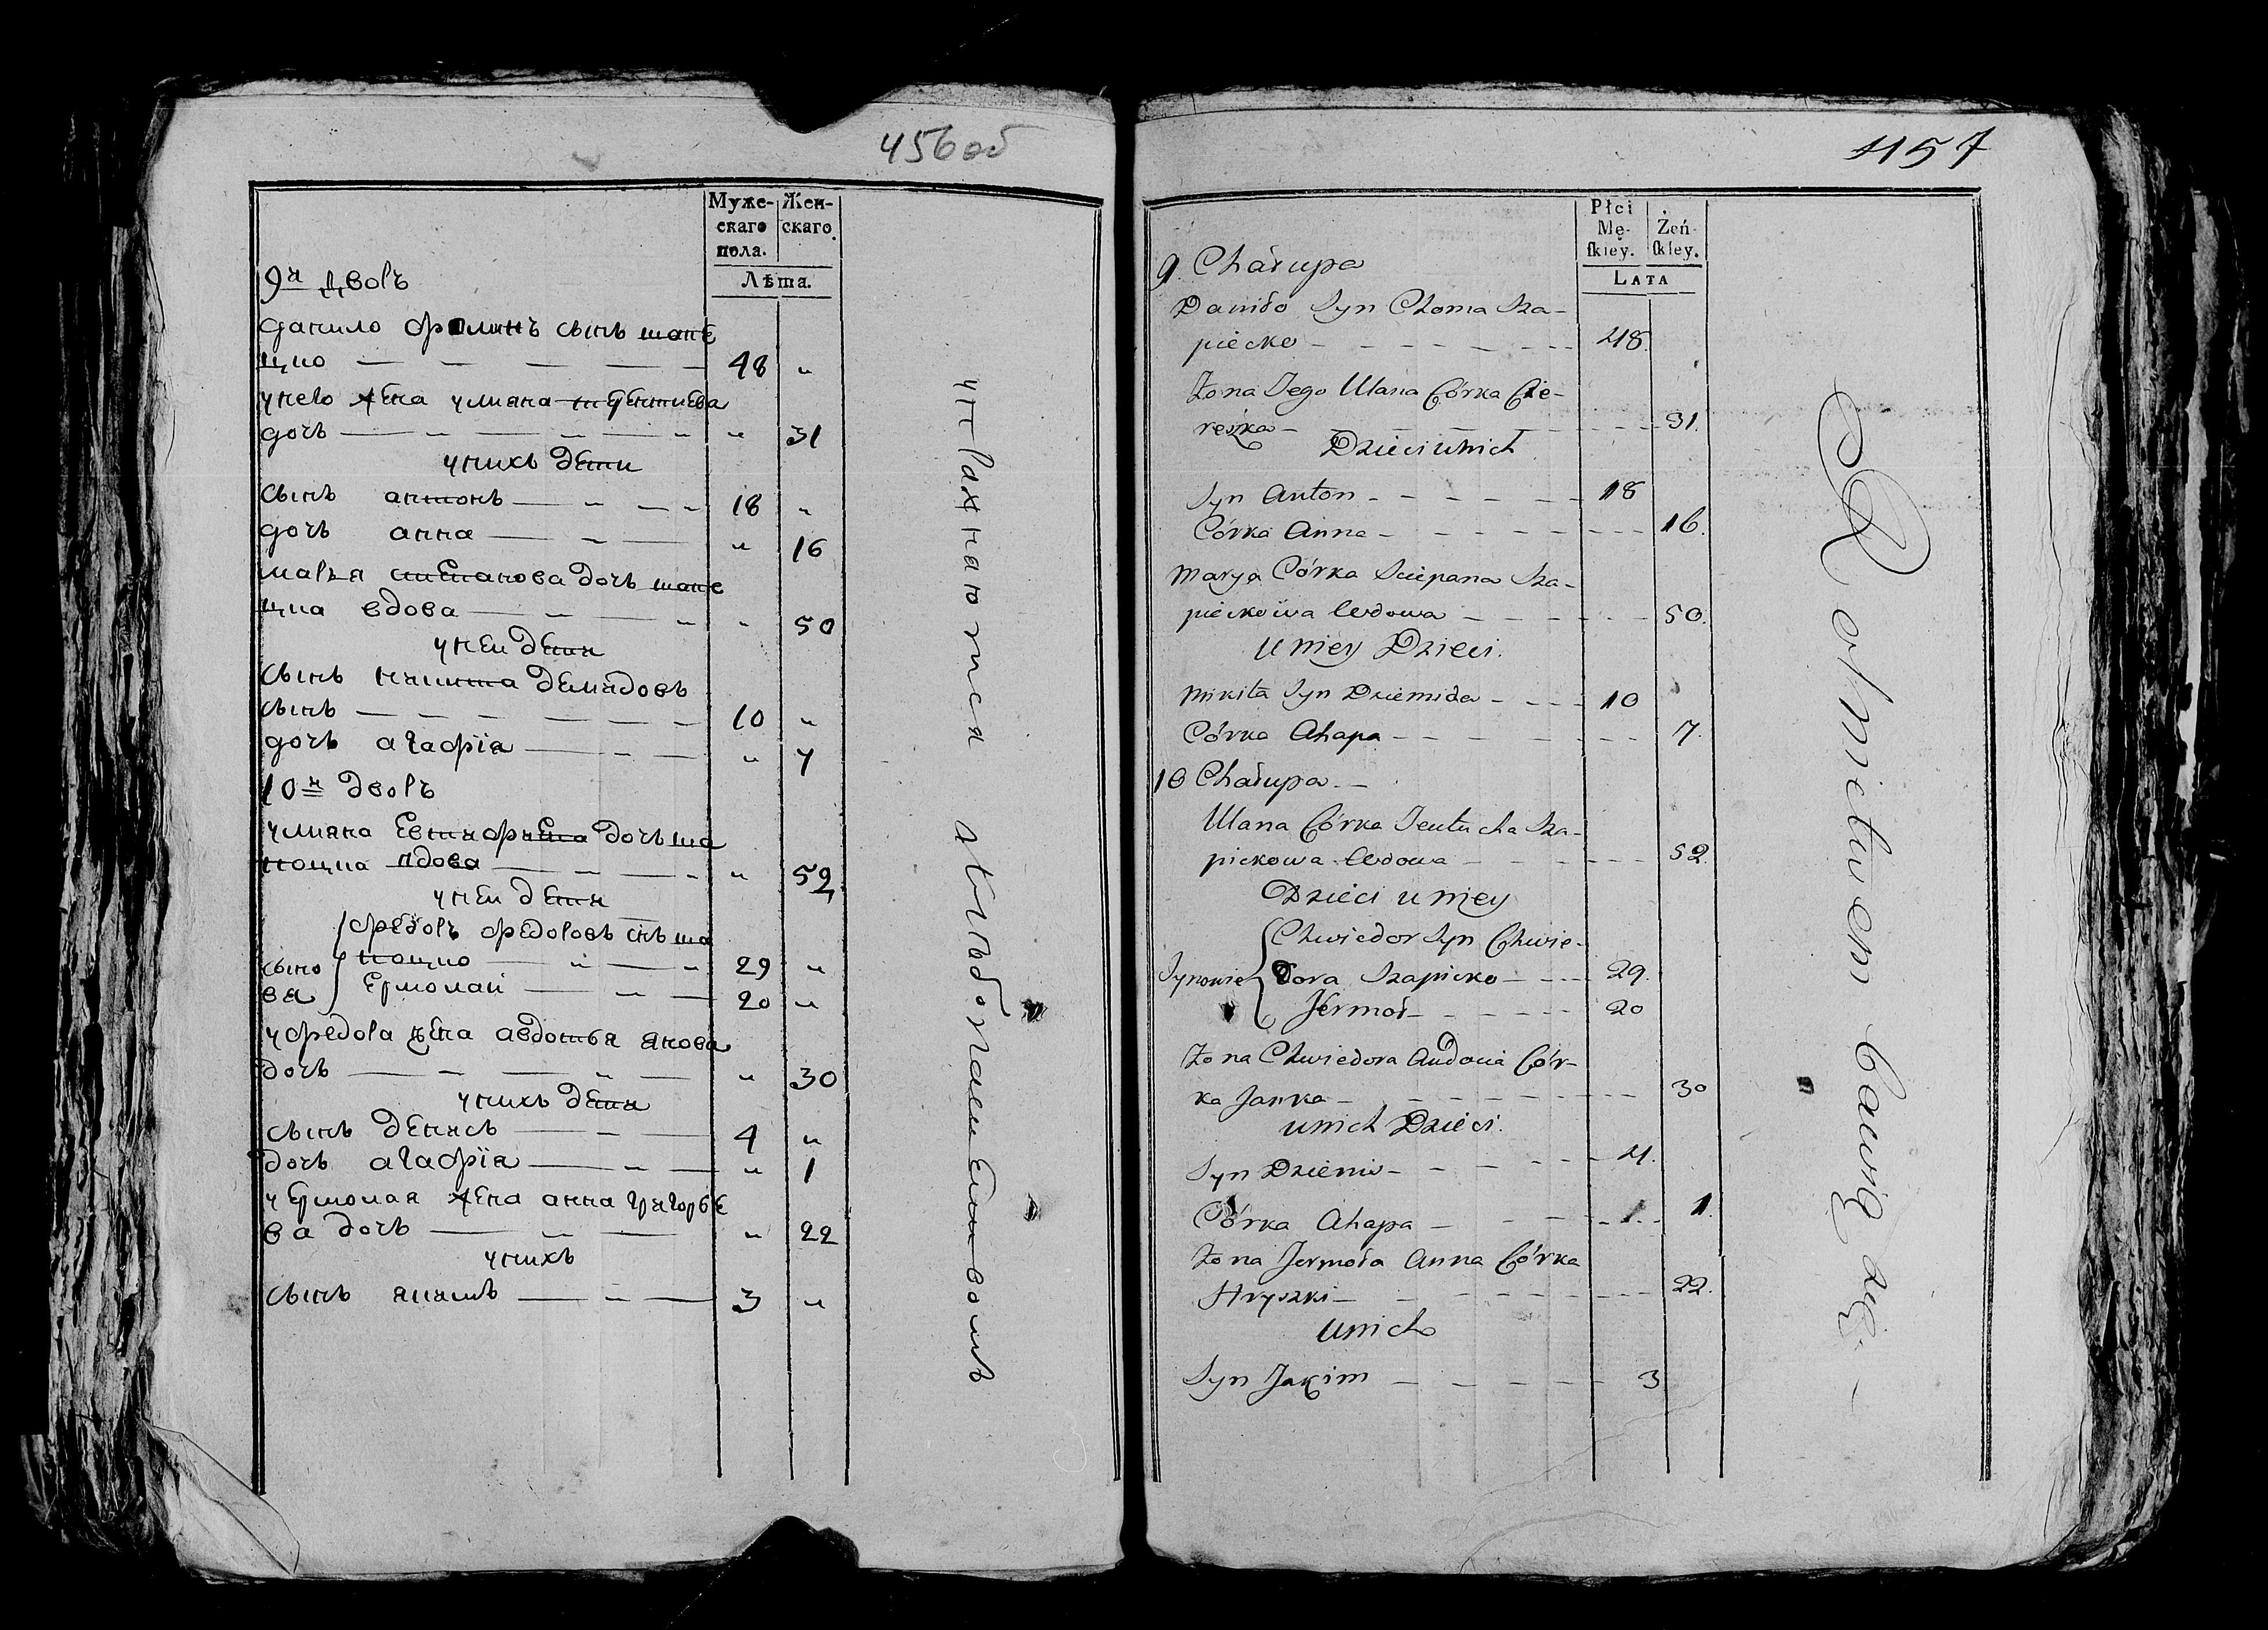 456 об
Муже-
скаго
пола.
Жен-
скаго.
Лѣта.
9й дворъ
данило фоминъ сынъ шапе
цко 48 "
унего жена улиана
дочь " 31
унихъ дети
сынъ антонъ 18 "
дочь анна " 16
марья степанова дочь шапе
цка вдова " 50
уней дети
сынъ никита демидовъ
сынъ 10 "
дочь агафïа " 7
10й дворъ
улиана дочь ша
вдова " 52
уней дети
федоръ федоровъ снъ ша
сыно 29 "
ва ермолай 20 "
уфедора жена авдотья якова
дочь " 30
унихъ дети
сынъ денисъ 4 "
дочь агафïа " 1
уермолая жена анна григорье
ва дочь " 22
унихъ
сынъ якимъ 3 "
хлѣбопашеством
457
Płci
Mę-
skiey.
Żeń-
skiey.
LATA
9. Chałupa
Daniło Syn Choma Sza-
piecko 48.
Żona Jego Ulana Córka Cie-
reszka 31.
Dzieci u nich
Syn Anton 18
Córka Anna 16.
Marya Córka Sciepana Sza-
pieckowa Wdowa 50.
u niey Dzieci.
Mikita Syn Dziemida 10
Córka Ahapa 7.
10 Chałupa
Ulana Córka Jeutucha Sza-
pickowa Wdowa 52.
Dzieci u niey
Chwiedor Syn Chwie-
Synowie dora Szapicko 29.
Jermoł 20
Żona Chwiedora Audocia Cór-
ka Janka 30
u nich Dzieci.
Syn Dzienis 4.
Córka Ahapa 1.
Żona Jermoła Anna Córka
Hryszki 22.
u nich
Syn Jakim 3
Rolnictwem bawią się